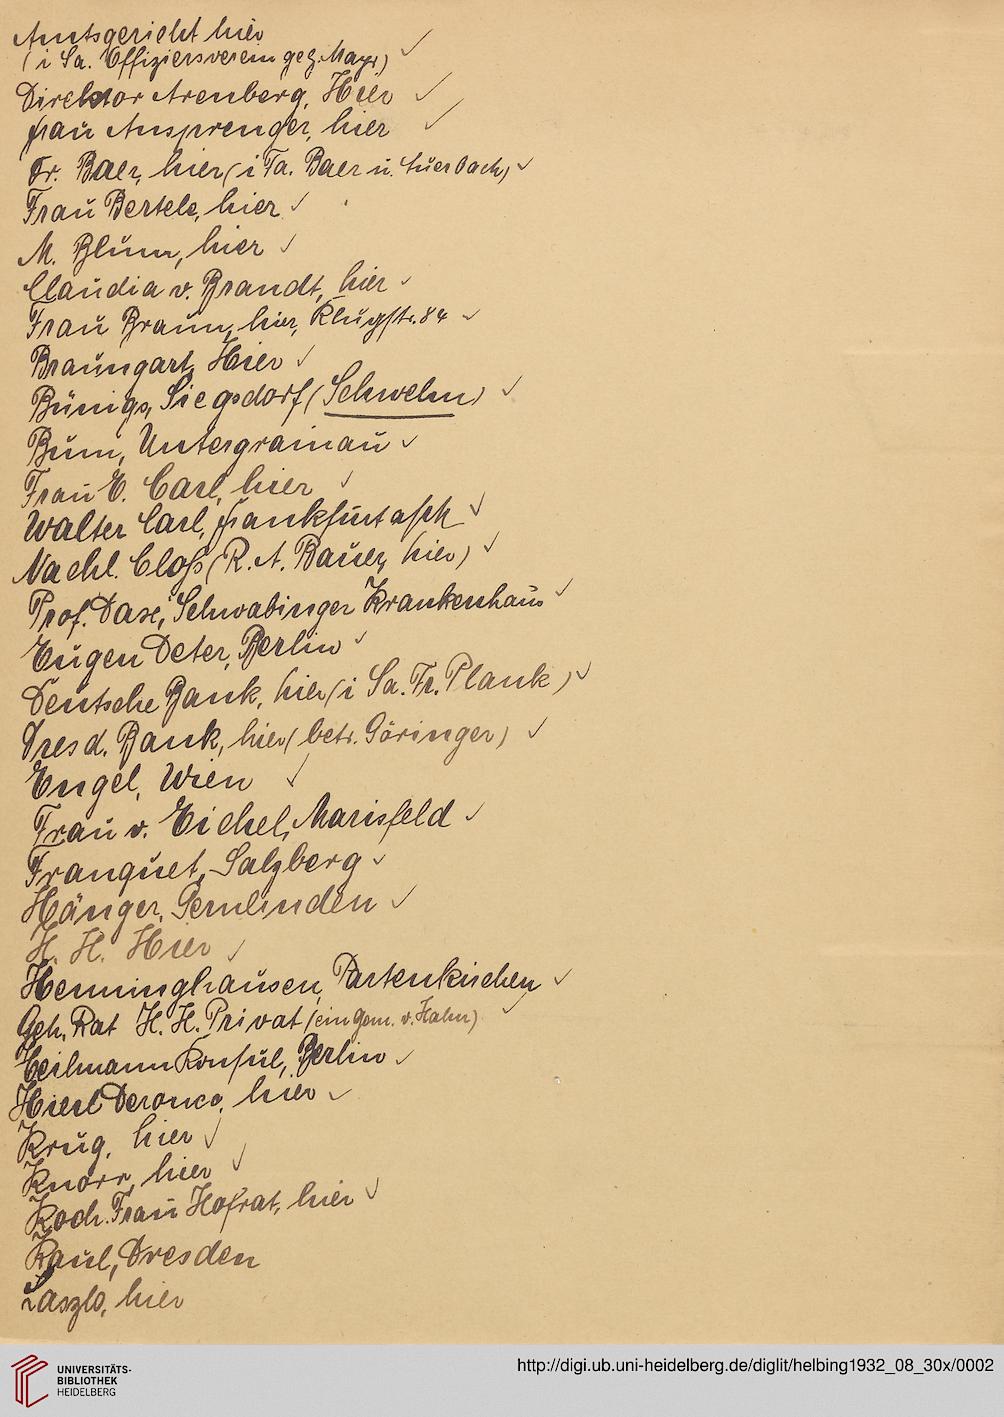 Amtsgericht hier
(i Sa. Offiziersverein geg. Mayr)
Direktor Arenberg, Hier
Frau Ansprenger, hier
Dr. Baer, hier (i Fa. Baer u. Auerbach)
Frau Bertele, hier
M. Blum, hier
Claudia v. Brandt, hier
Frau Braun, hier, Klugstr. 84
Braungart, Hier
Bünigs, Siegsdorf (Schwelm)
Bum, Untergrainau
Frau E. Carl, hier
Walter Carl, Frankfurt a/M
Nachl. Closs (R. A. Bauer, hier)
Prof. Dax, Schwabinger Krankenhaus
Eugen Deter, Berlin
Deutsche Bank, hier (i Sa. Fr. Plank)
Dresd. Bank, hier (betr. Göringer)
Engel, Wien
Frau v. Eichel, Marisfeld
Franquet, Salzberg
Hänger, Gernlinden
H. H. Hier
Henninghausen, Partenkirchen
Geh. Rat H. H. Privat (ein Gem. v. Hahn)
Heilmann Konsul, Berlin
Hierl Deronco, hier
Krug, hier
Knorr, hier
Koch. Frau Hofrat, hier
Kaul, Dresden
Laszlo, hier
UNIVERSITÄTS-
BIBLIOTHEK
HEIDELBERG
http://digi.ub.uni-heidelberg.de/diglit/helbing1932_08_30x/0002